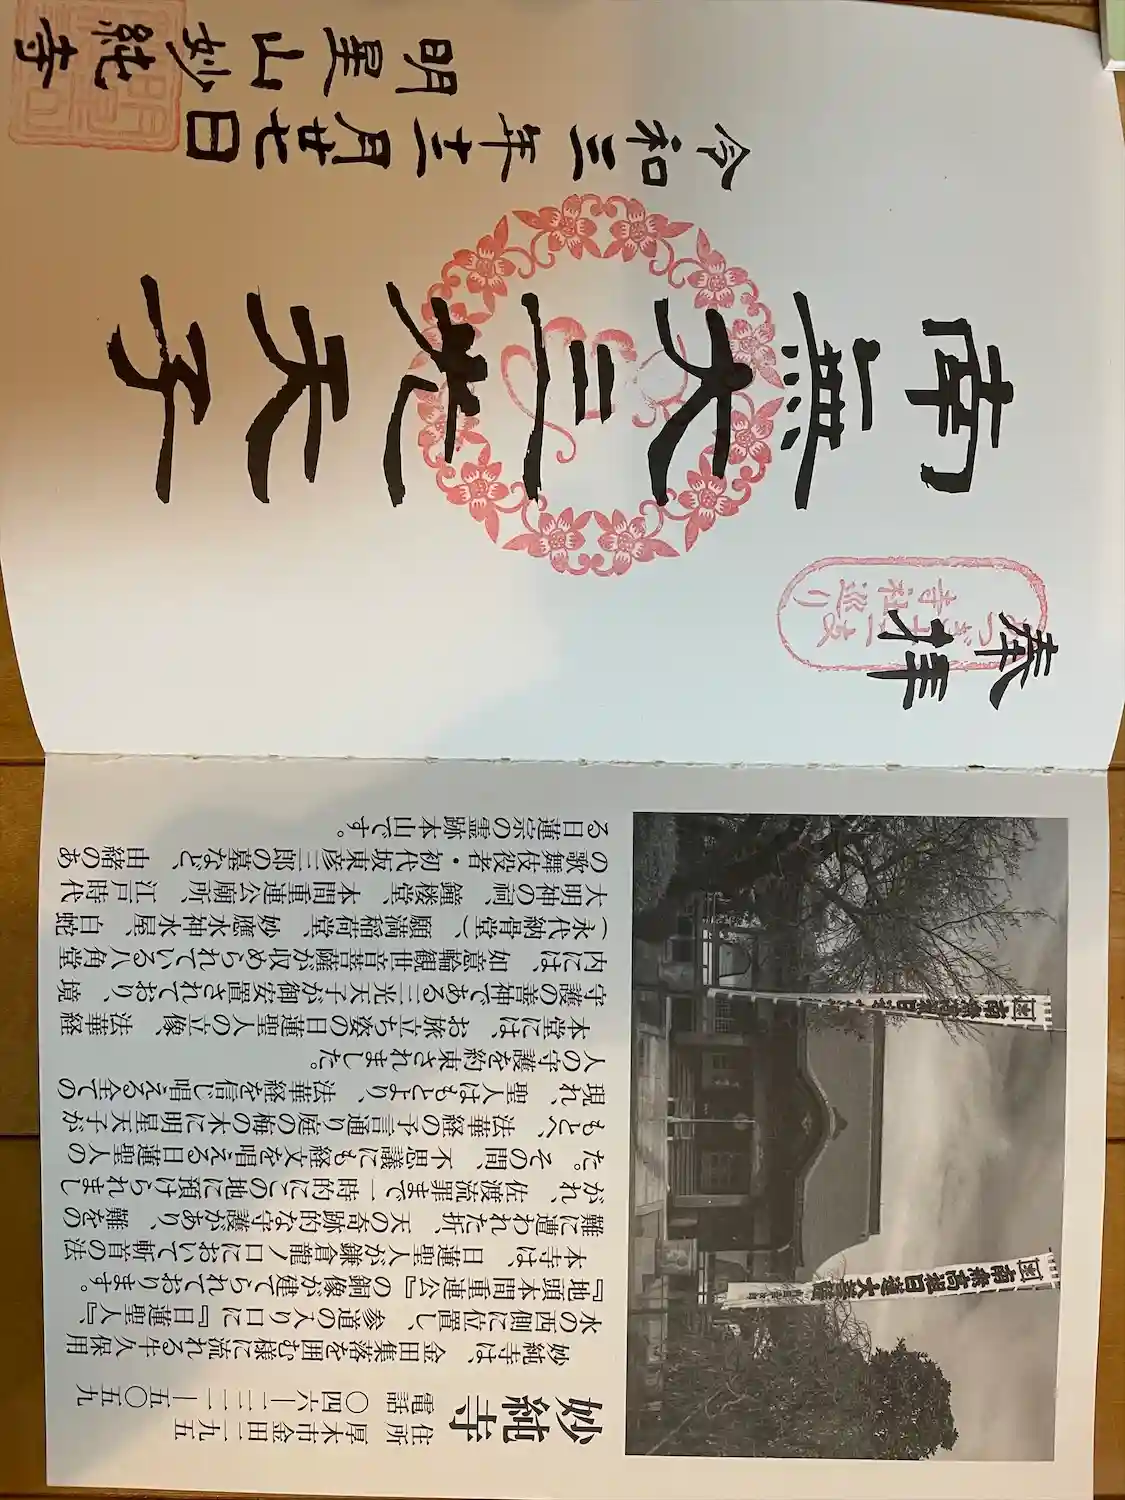 妙純寺
住所　厚木市金田二九五
電話　〇四六―二二一―五〇五九
妙純寺は、金田集落を囲む様に流れる牛久保用
水の西側に位置し、参道の入り口に『日蓮聖人』、
『地頭本間重連公』の銅像が建てられております。
本寺は、日蓮聖人が鎌倉龍ノ口において斬首の法
難に遭われた折、天の奇跡的な守護があり、難をの
がれ、佐渡流罪まで一時的にこの地に預けられまし
た。その間、不思議にも経文を唱える日蓮聖人の
もとへ、法華経の予言通り庭の梅の木に明星天子が
現れ、聖人はもとより、法華経を信じ唱える全ての
人の守護を約束されました。
本堂には、お旅立ち姿の日蓮聖人の立像、法華経
守護の善神である三光天子が御安置されており、境
内には、如意輪観世音菩薩が収められている八角堂
(永代納骨堂)、願満稲荷堂、妙應水神水屋、白蛇
大明神の祠、鐘楼堂、本間重連公廟所、江戸時代
の歌舞伎役者・初代坂東彦三郎の墓など、由緒のあ
る日蓮宗の霊跡本山です。
南無高祖日蓮大菩薩
奉拝
あつぎ十二支
寺社巡り
南無大三光天子
令和三年十二月廿七日
明星山妙純寺